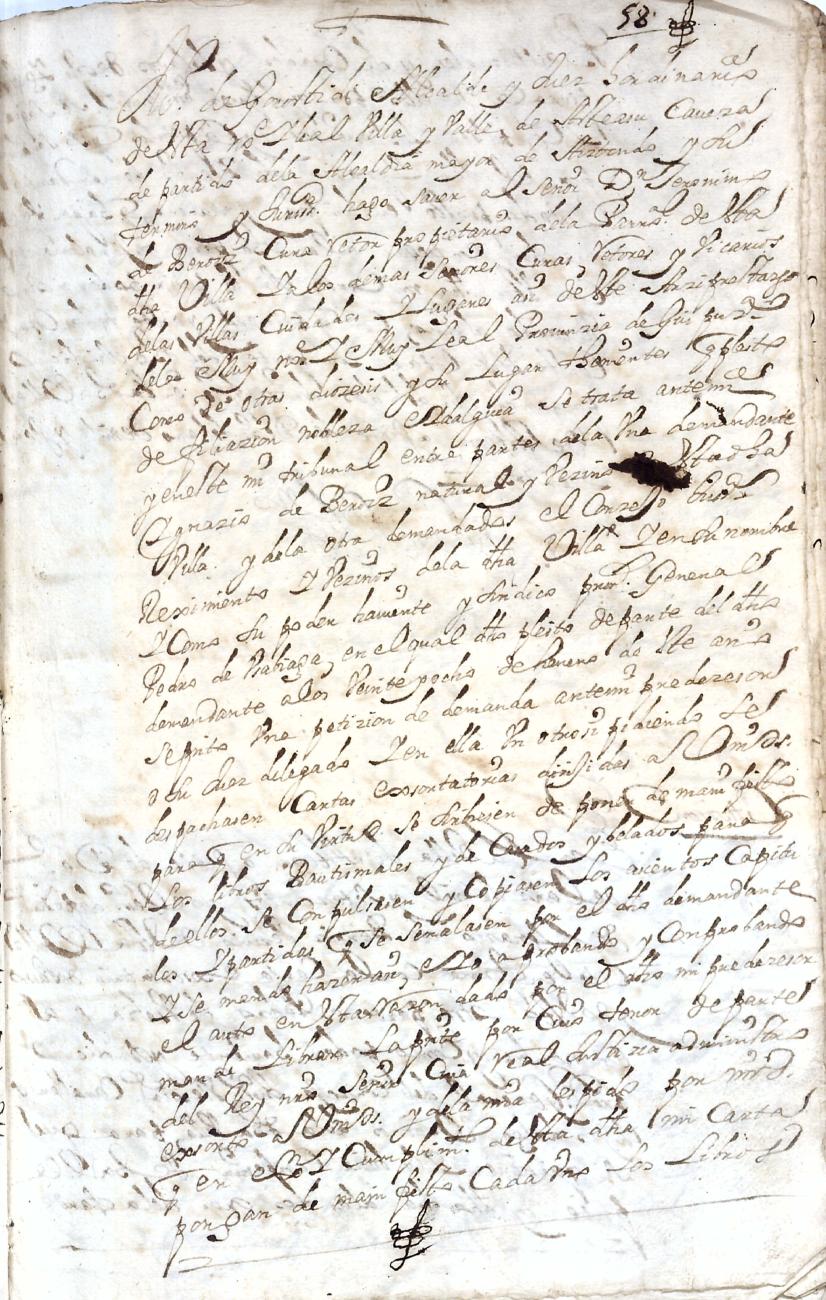 58
de Gorostidi Alcalde y Juez hordinario
de esta noe Y leal Villa y Valle de Asteasu Caveza
de partido dela Alcaldia mayor de Aiztondo y su
termino y Jurisdn hago saver al Señor Dn Jeronimo
de Beroiz Cura retor propietario dela Parroal de esta
dha Villa Y a los demas Señores Curas retores y Vicarios
delas Villas Ciudades Y Lugares asi de este Arziprestazgo
dela Muy noe Y Muy Leal Provinzia de Guipuzcoa
Como de otras diozesis y su Lugar thenientes q pleito
de filiazion nobleza e Hidalguia se trata ante mi
y en este mi tribunal entre partes dela Una demandante
Ygnazio de Beroiz natural y Vezino de esta dha
Villa y dela otra demandados el Conzejo Justa
Reximiento Y Vezinos dela dha Villa Y en su nombre
Y Como su poder haviente y sindico pror General
Pedro de en el qual dho pleito de parte del dho
demandante a los Veinte y ocho de henero de este año
Se pnto Una petizion de demanda ante mi predezesor
o su Juez delegado Y en ella Un otrosi pidiendo se
despachasen Cartas exsortatorias dirijidas a S Vmsds.
para q en su Virtud se sirbiesen de poner de manifiesto
Los libros Bautismales y de Casados y belados para q
de ellos se Conpulsasen y Copiasen Los asientos Capitu
los Y partidas q se señalasen por el dho demandante
Y se mando hazer y aprobando y Conprobando
el auto en esta razon dado por el dho mi predezesor
mande librar La pnte por Cuio tenor de parte
del Rey nro Señor Cuia real Justizia administro
exsorto a S Vmsds. y dela mia les pido por mrd.
q en Y Cumplimto de esta dha mi Carta
pongan de manifiesto Cada Uno Los Libros